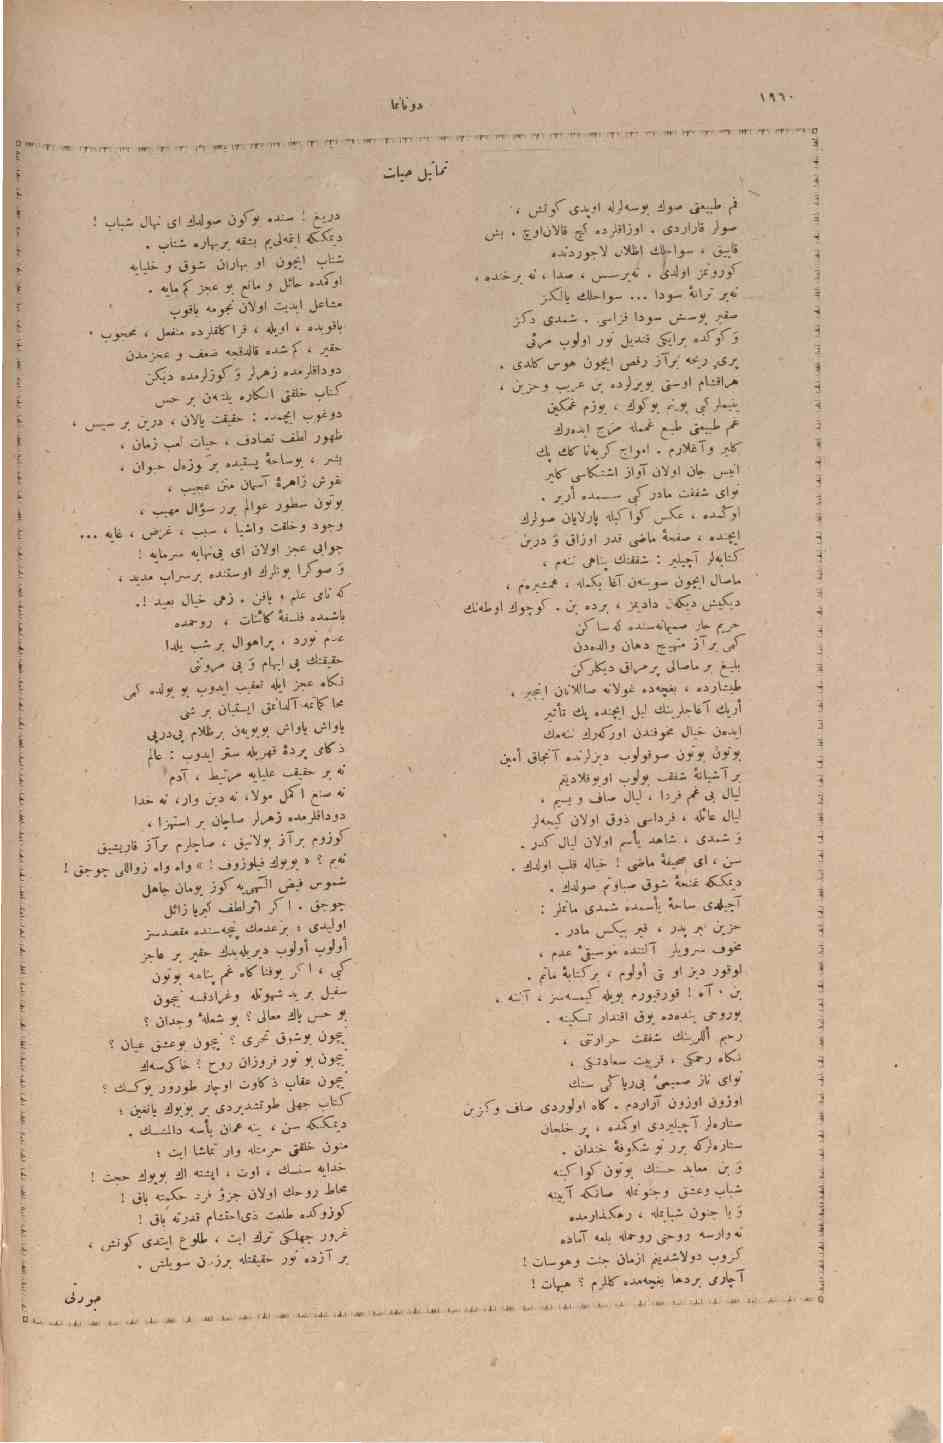 ١٩٦٠
دونانما
تماثيل حيات
فم طبيعتى صوك بوسه‌لرله اوپدى كونش ،
صولر قاراردى . اوزاقلرده كچ قالان اوچ . بش
قاييق ، سواحلك اظلال لاجوردنده
كورونمز اولدى . نه‌برسس ، صدا ، نه برخنده ،
نه‌بر ترانهٔ سودا ... سواحلك يالكز
صفير بوسش سودا فزاسى . شمدى دكز
و كوكده برايكى قنديل نور اولوب مرئى
پرى ريحه برآز رقص ايچون هوس كلدى .
هراقشام اوستى بويرلرده بن غريب وحزين ،
يتيملر كبى بوينم بوكوك ، يوزم غمكين
غم طبيعتى طبع غممله مزج ايده‌رك
كلير وآغلارم . امواج كريه‌ناكك پك
انيس جان اولان آواز اشتكاسى كلير
نواى شفقت مادر كبى سسمده أرير .
اوكمده ، عكس كواكبله پارلايان صولرك
ايچنده ، صفحهٔ ماضى قدر اوزاق و درين
كتابه‌لر آچيلير : شفقتك پناهى ننه‌م ،
ماصال ايچون سويله‌ن آغا بكمله ، همشيره‌م ،
ديكيش ديكه‌ن داديمز ، برده بن . كوچوك اوطه‌نك
حريم حار صميمانه‌سنده كه ساكن
كهى برآز متهيج دهان والده‌دن
بليغ بر ماصالى پرمراق ديكلركن
طيشارده ، بغچه‌ده غولانه صاللانان اينجير ،
أريك آغاجلرينك ليل ايچنده پك تأثير
ايده‌ن خيال مخوفندن اوركه‌رك ننه‌مك
بوتون بوتون صوقولوب ديزلرنده آنجاق أمين
بر آشيانهٔ شفقت بولوب اويوقلاديغم
ليال بى غم فردا ، ليال صاف و بسيم ،
ليال عائله ، فرداسى ذوق اولان كيجه‌لر
و شمدى ، شاهد يأسم اولان ليال كدر .
سن ، اى صحيفهٔ ماضى ! خياله قلب اولدك .
ديمككه غنچهٔ شوق صباوتم صولدك .
آچيلدى ساحهٔ يأسمده شمدى ماتملر :
حزين قبر پدر ، قبر بيكس مادر .
مخوف سرويلر آلتنده موسيقىٔ عدم ،
اوقور ديز او بتى أولوم ، بركتابهٔ ماتم .
بن ٠ آه ! قورقيورم بويله كيمسه‌سز ، آننه ،
بوروحى بنده‌ده يوق اقتدار تسكينه .
رحيم أللرينك شفقت حرارتى ،
نكاه رحمكى ، قربيت سعادتكى ،
نواى ناز صميمىٔ بى‌رياكى سنك
اوزون اوزون آراردم . كاه اولوردى صاف وكزين
ستاره‌لر آچيليردى اوكمده ، پر خلجان
ستاره‌لركه برر نو شكوفهٔ خندان .
و بن معابد حسنك بوتون كواكبنه
شباب وعشق وجنونمله صانكه آيينه
و يا جنون شبابمله ، رهكذارمده
نه‌وارسه روحنى روحمله بلعه آماده
كزوب دولاشديغم ازمان جنت وهوسات !
آچارمى بردها بغچه‌مده كللرم ؟ هيهات !
دريغ ! سنده بوكون صولدك اى نهال شباب !
ديمككه ايتمه‌ليم بشقه بربهاره شتاب .
شتاب ايچون او بهاران شوق و خليايه
اوكمده حائل و مانع بو عجز كم مايه .
مشاعل ابديت اولان نجومه باقوب
باقوبده ، اويله ، قراكلقلرده منفعل ، محجوب ٠
حقير ، كم شده قالدقجه ضعف و عجزمدن
دوداقلرمده زهرلر و كوزلرمده ديكن
كتاب خلقتى انكاره يلته‌نن بر حس
دوغوب ايچمده : حقيقت يالان ، درين بر سيس ،
ظهور لطف تصادف ، حيات لعب زمان ،
بشر ، بوساحهٔ پستيده بر كوزه‌ل حيوان ،
نقوش زاهرهٔ آسمان متن عجيب ،
بوتون سطور عوالم برر سؤال مهيب ،
وجود وخلقت واشيا ، سبب ، غرض ، غايه ...
جوابى عجز اولان اى بى‌نهايه سرمايه !
و صوكرا بونلرك اوستنده برسراب مديد ،
كه نامى علم و يقين . زهى خيال بعيد !.
باشمده فلسفهٔ كائنات ، روحمده
عدم نورد . پراهوال بر شب يلدا
حقيقتك پى ابهام و بى مروتنى
نكاه عجز ايله تعقيب ايدوب بو يولده كهى
محاكماتمه آلدانمق ايستيان بر شى
ياواش ياواش بويويه‌ن برظلام پى‌درپى
ذكامى پردهٔ قهريله ستر ايدوب : عالم
نه بر حقيقت عليايه مرتبط ، آدم
نه صنع اكمل مولا، نه دين وار، نه خدا
دوداقلرمده زهرلر صاچان بر استهزا ،
كوزوم برآز بولانيق ، صاچلرم برآز قاريشيق
نه‌يم ؟ « بويوك فيلوزوف ! » واه واه زواللى چوجق !
شموس فيض الٓهىيه كوز يومان جاهل
چوجق . اكر اثرلطف كبريا زائل
اوليدى ؛ بزعدمك پنچه‌سنده مقصدسز
أولوب أولوب ديريله‌يدك حقير بر عاجز
كبى ، اكر بوفناكاه غم پناهه بوتون
سفيل بر يد شهوتله وغرادقسه نيچون
بو حس پاك معالى ؟ بو شعلهٔ وجدان ؟
نيچون بوشوق تحرى ؟ نيچون بوعشق عيان ؟
نيچون بو نور فروزان روح ؟ خاكى‌سه‌ك
نيچون عقاب ذكاوت اوچار طورور يوكسك ؟
كتاب جهلى طوتشديردى بر بويوك يانغين ؛
ديمككه سن ، ينه عمان يأسه دالمشسك .
متون خلقتى حرمتله وار تماشا ايت ؛
خدايه سنسك ، اوت ، ايشته اك بويوك حجت !
محاط روحك اولان جزؤ فرد حكمته باق !
كوزوكده طلعت ذى‌احتشام قدرته باق !
غرور جهلكى ترك ايت ، طلوع ايتدى كونش ،
بر آزده نور حقيقتله سويلش .
جورتى